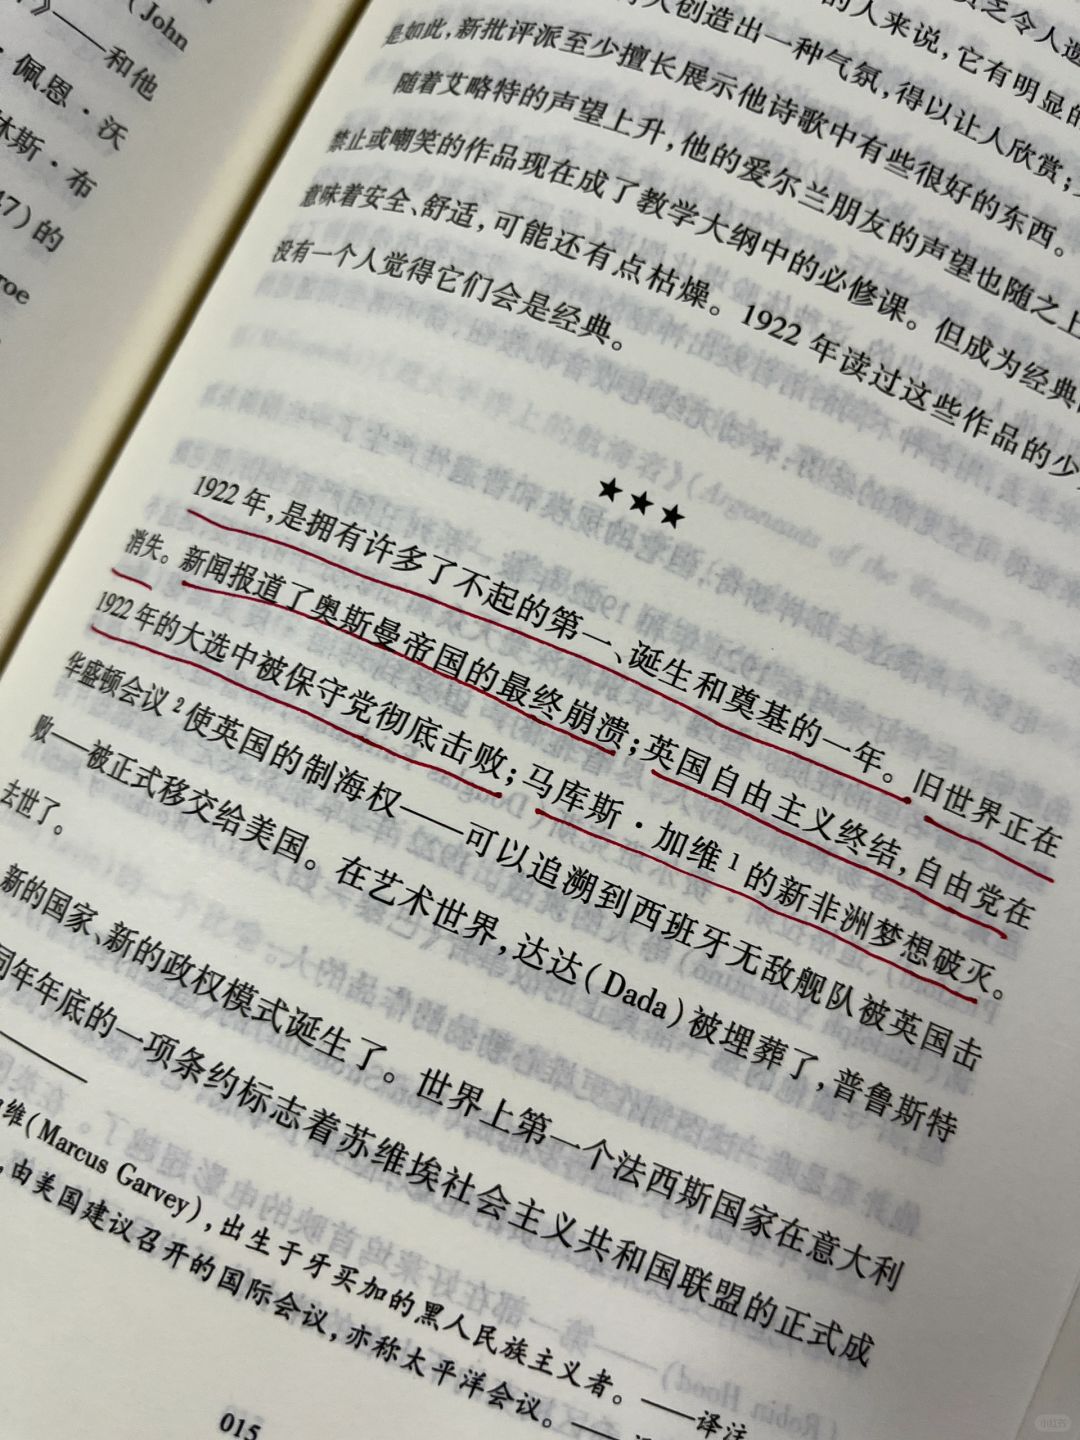 (John
》——和他
·佩恩·沃
休斯·布
47)的
roe
人创造出一种气氛,得以让人欣赏;
是如此,新批评派至少擅长展示他诗歌中有些很好的东西。
随着艾略特的声望上升,他的爱尔兰朋友的声望也随之上
禁止或嘲笑的作品现在成了教学大纲中的必修课。但成为经典
意味着安全、舒适,可能还有点枯燥。1922年读过这些作品的少
没有一个人觉得它们会是经典。
★★★
1922年,是拥有许多了不起的第一、诞生和奠基的一年。旧世界正在
消失。新闻报道了奥斯曼帝国的最终崩溃;英国自由主义终结,自由党在
1922年的大选中被保守党彻底击败;马库斯·加维1的新非洲梦想破灭。
华盛顿会议2使英国的制海权——可以追溯到西班牙无敌舰队被英国击
败——被正式移交给美国。在艺术世界,达达(Dada)被埋葬了,普鲁斯特
去世了。
新的国家、新的政权模式诞生了。世界上第一个法西斯国家在意大利
同年年底的一项条约标志着苏维埃社会主义共和国联盟的正式成
维(Marcus Garvey),出生于牙买加的黑人民族主义者。——译注
,由美国建议召开的国际会议,亦称太平洋会议。——
015
小红书